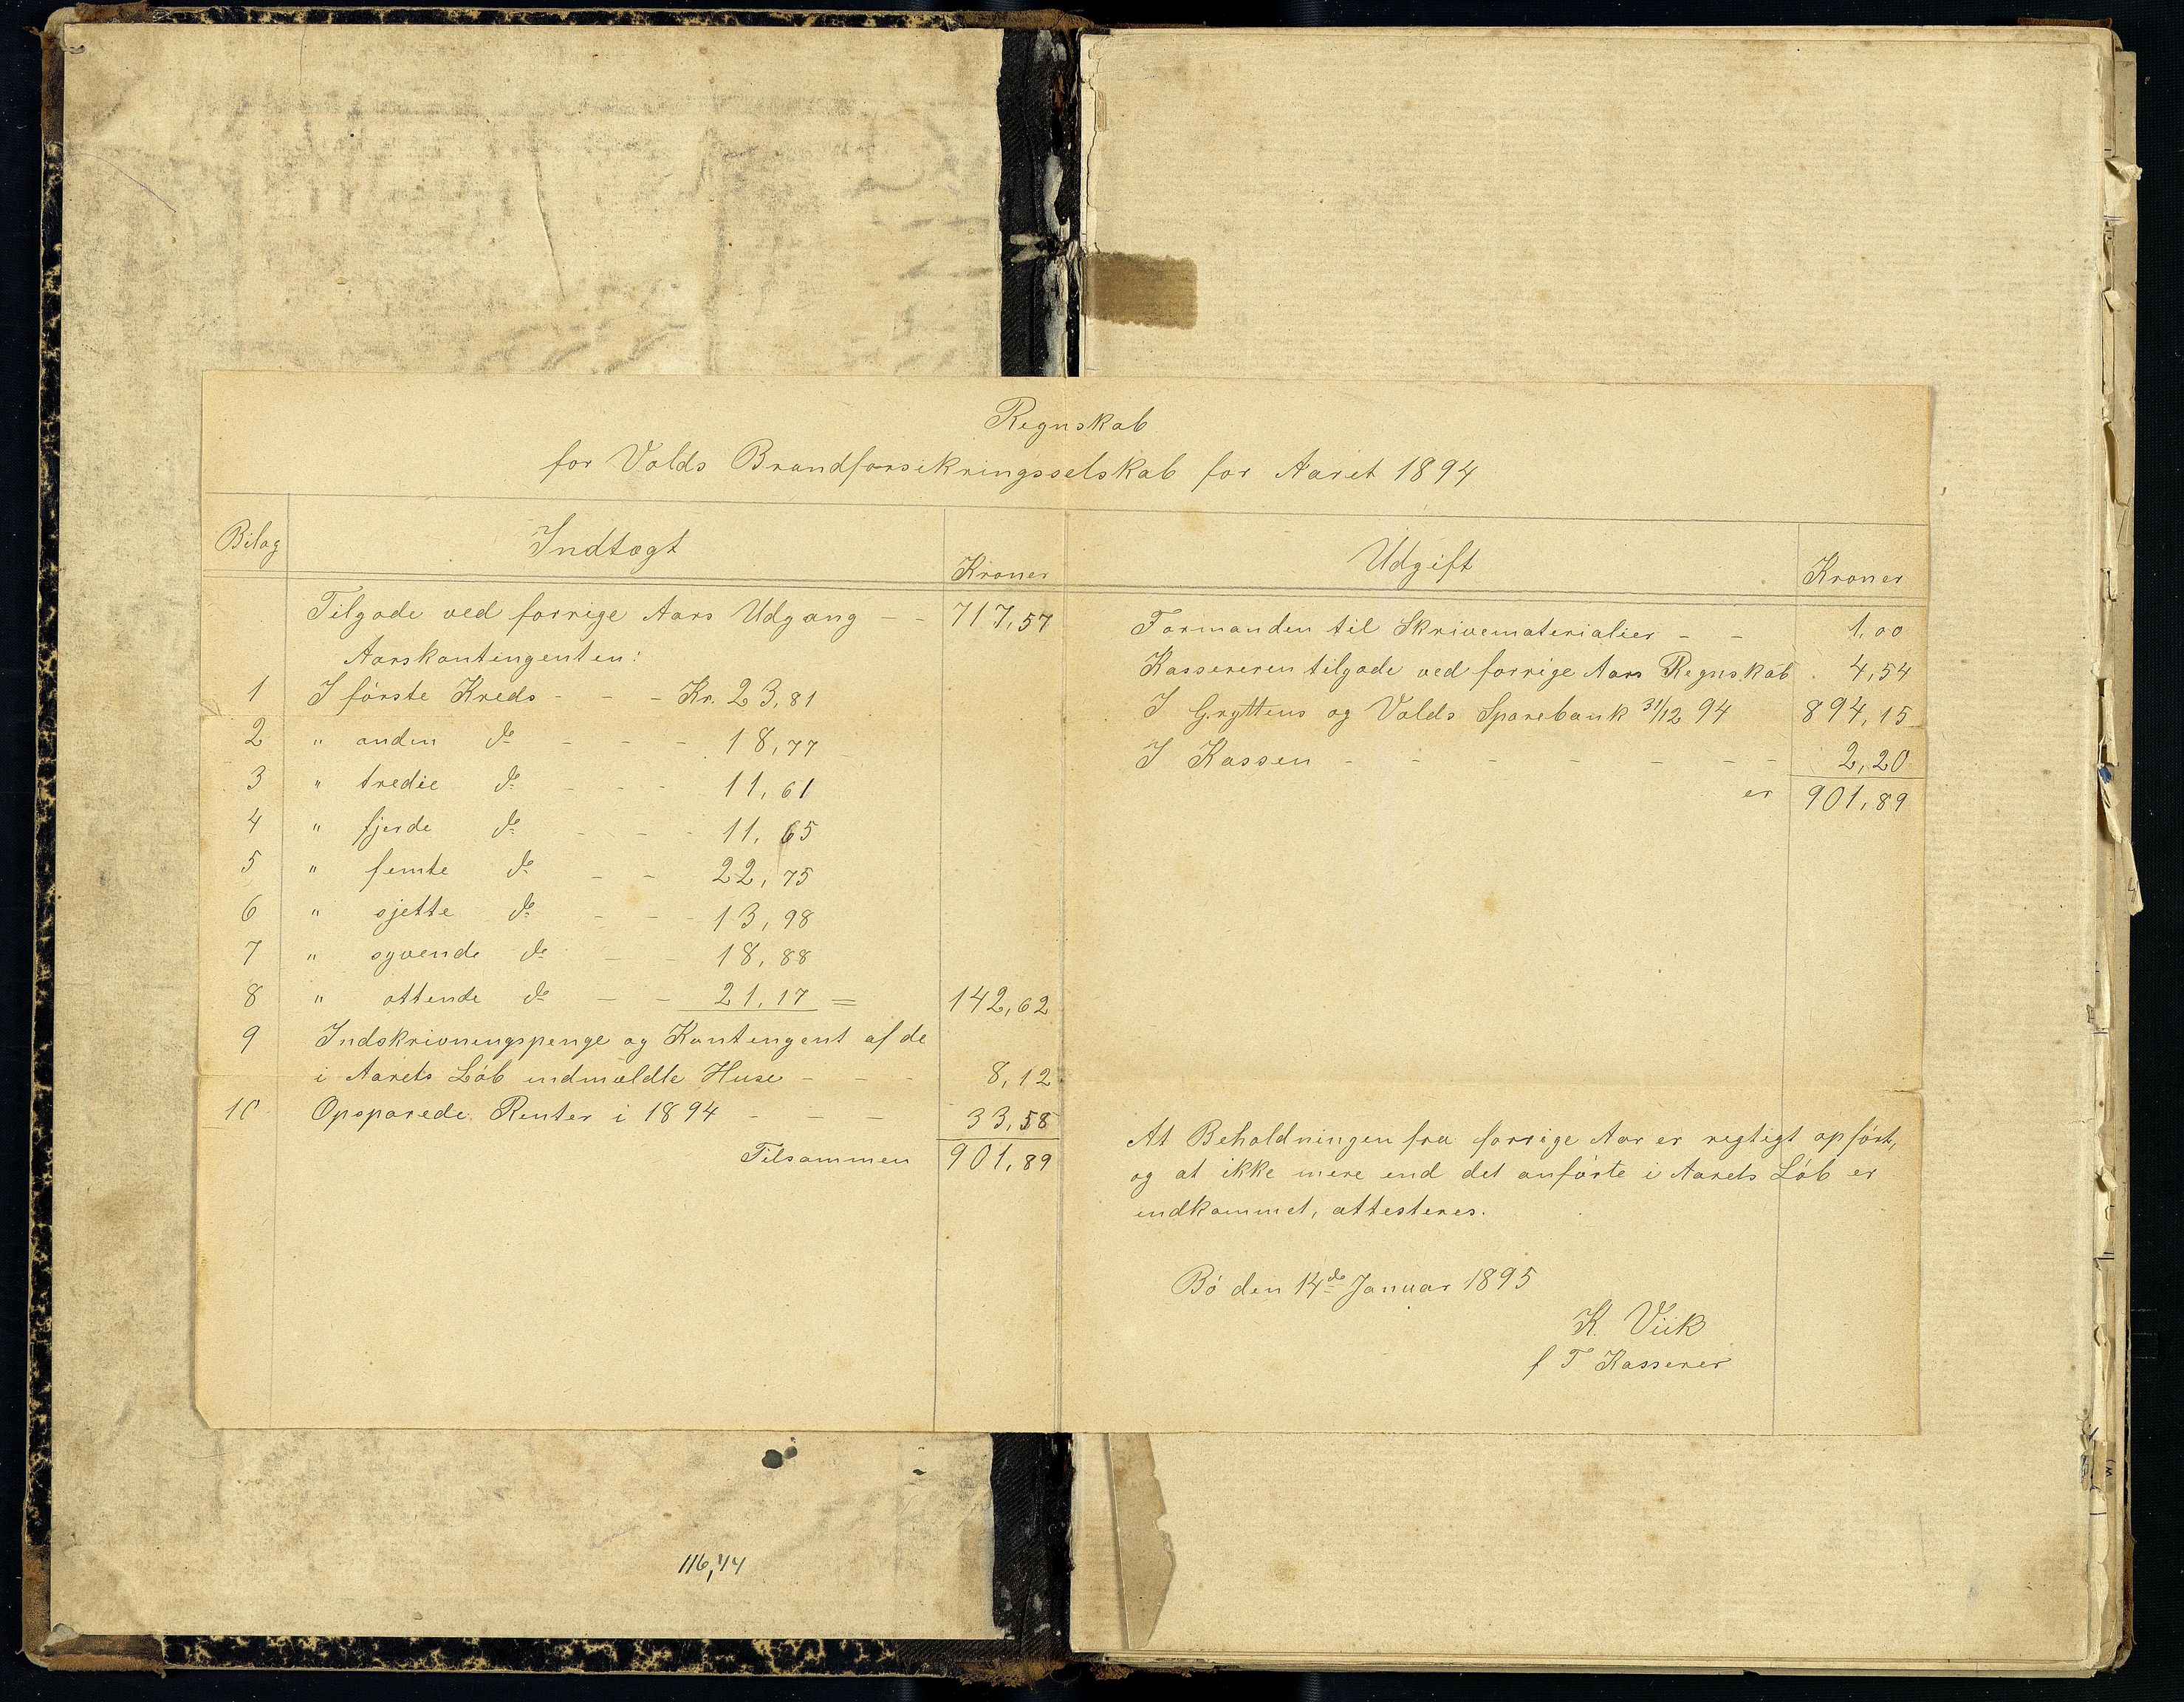 Regnskab
for Volds Brandforsikringsselskab for Aaret 1894
Bilag Indtægt Kroner
Tilgode ved forrige Aars Udgang - - 717,57
Aarskontingenten:
1 I förste Kreds - - - Kr. 23,81
2 " anden do - - - 18,77
3 " tredie do - - - 11,61
4 " fjerde do - - - 11,65
5 " femte do - - 22,75
6 " sjette do - - - 13,98
7 " syvende do - - 18,88
8 " ottende do - - 21,17 = 142,62
9 Indskrivningspenge og Kontingent af de
i Aarets Löb indmeldte Huse - - - 8,12
10 Opsparede Renter i 1894 - - - 33,58
Tilsammen 901,89
Udgift Kroner
Formanden til Skrivematerialier - - 1,00
Kassereren tilgode ved forrige Aars Regnskab 4,54
I Gryttens og Volds Sparebank 31/12 94 894,15
I Kassen - - - - - - 2,20
er 901,89
At Beholdningen fra forrige Aar er rigtigt opfört,
og at ikke mere end det anförte i Aarets Löb er
indkommet, attesteres.
Bö den 14de Januar 1895
K. Viik
f T Kasserer
116,44